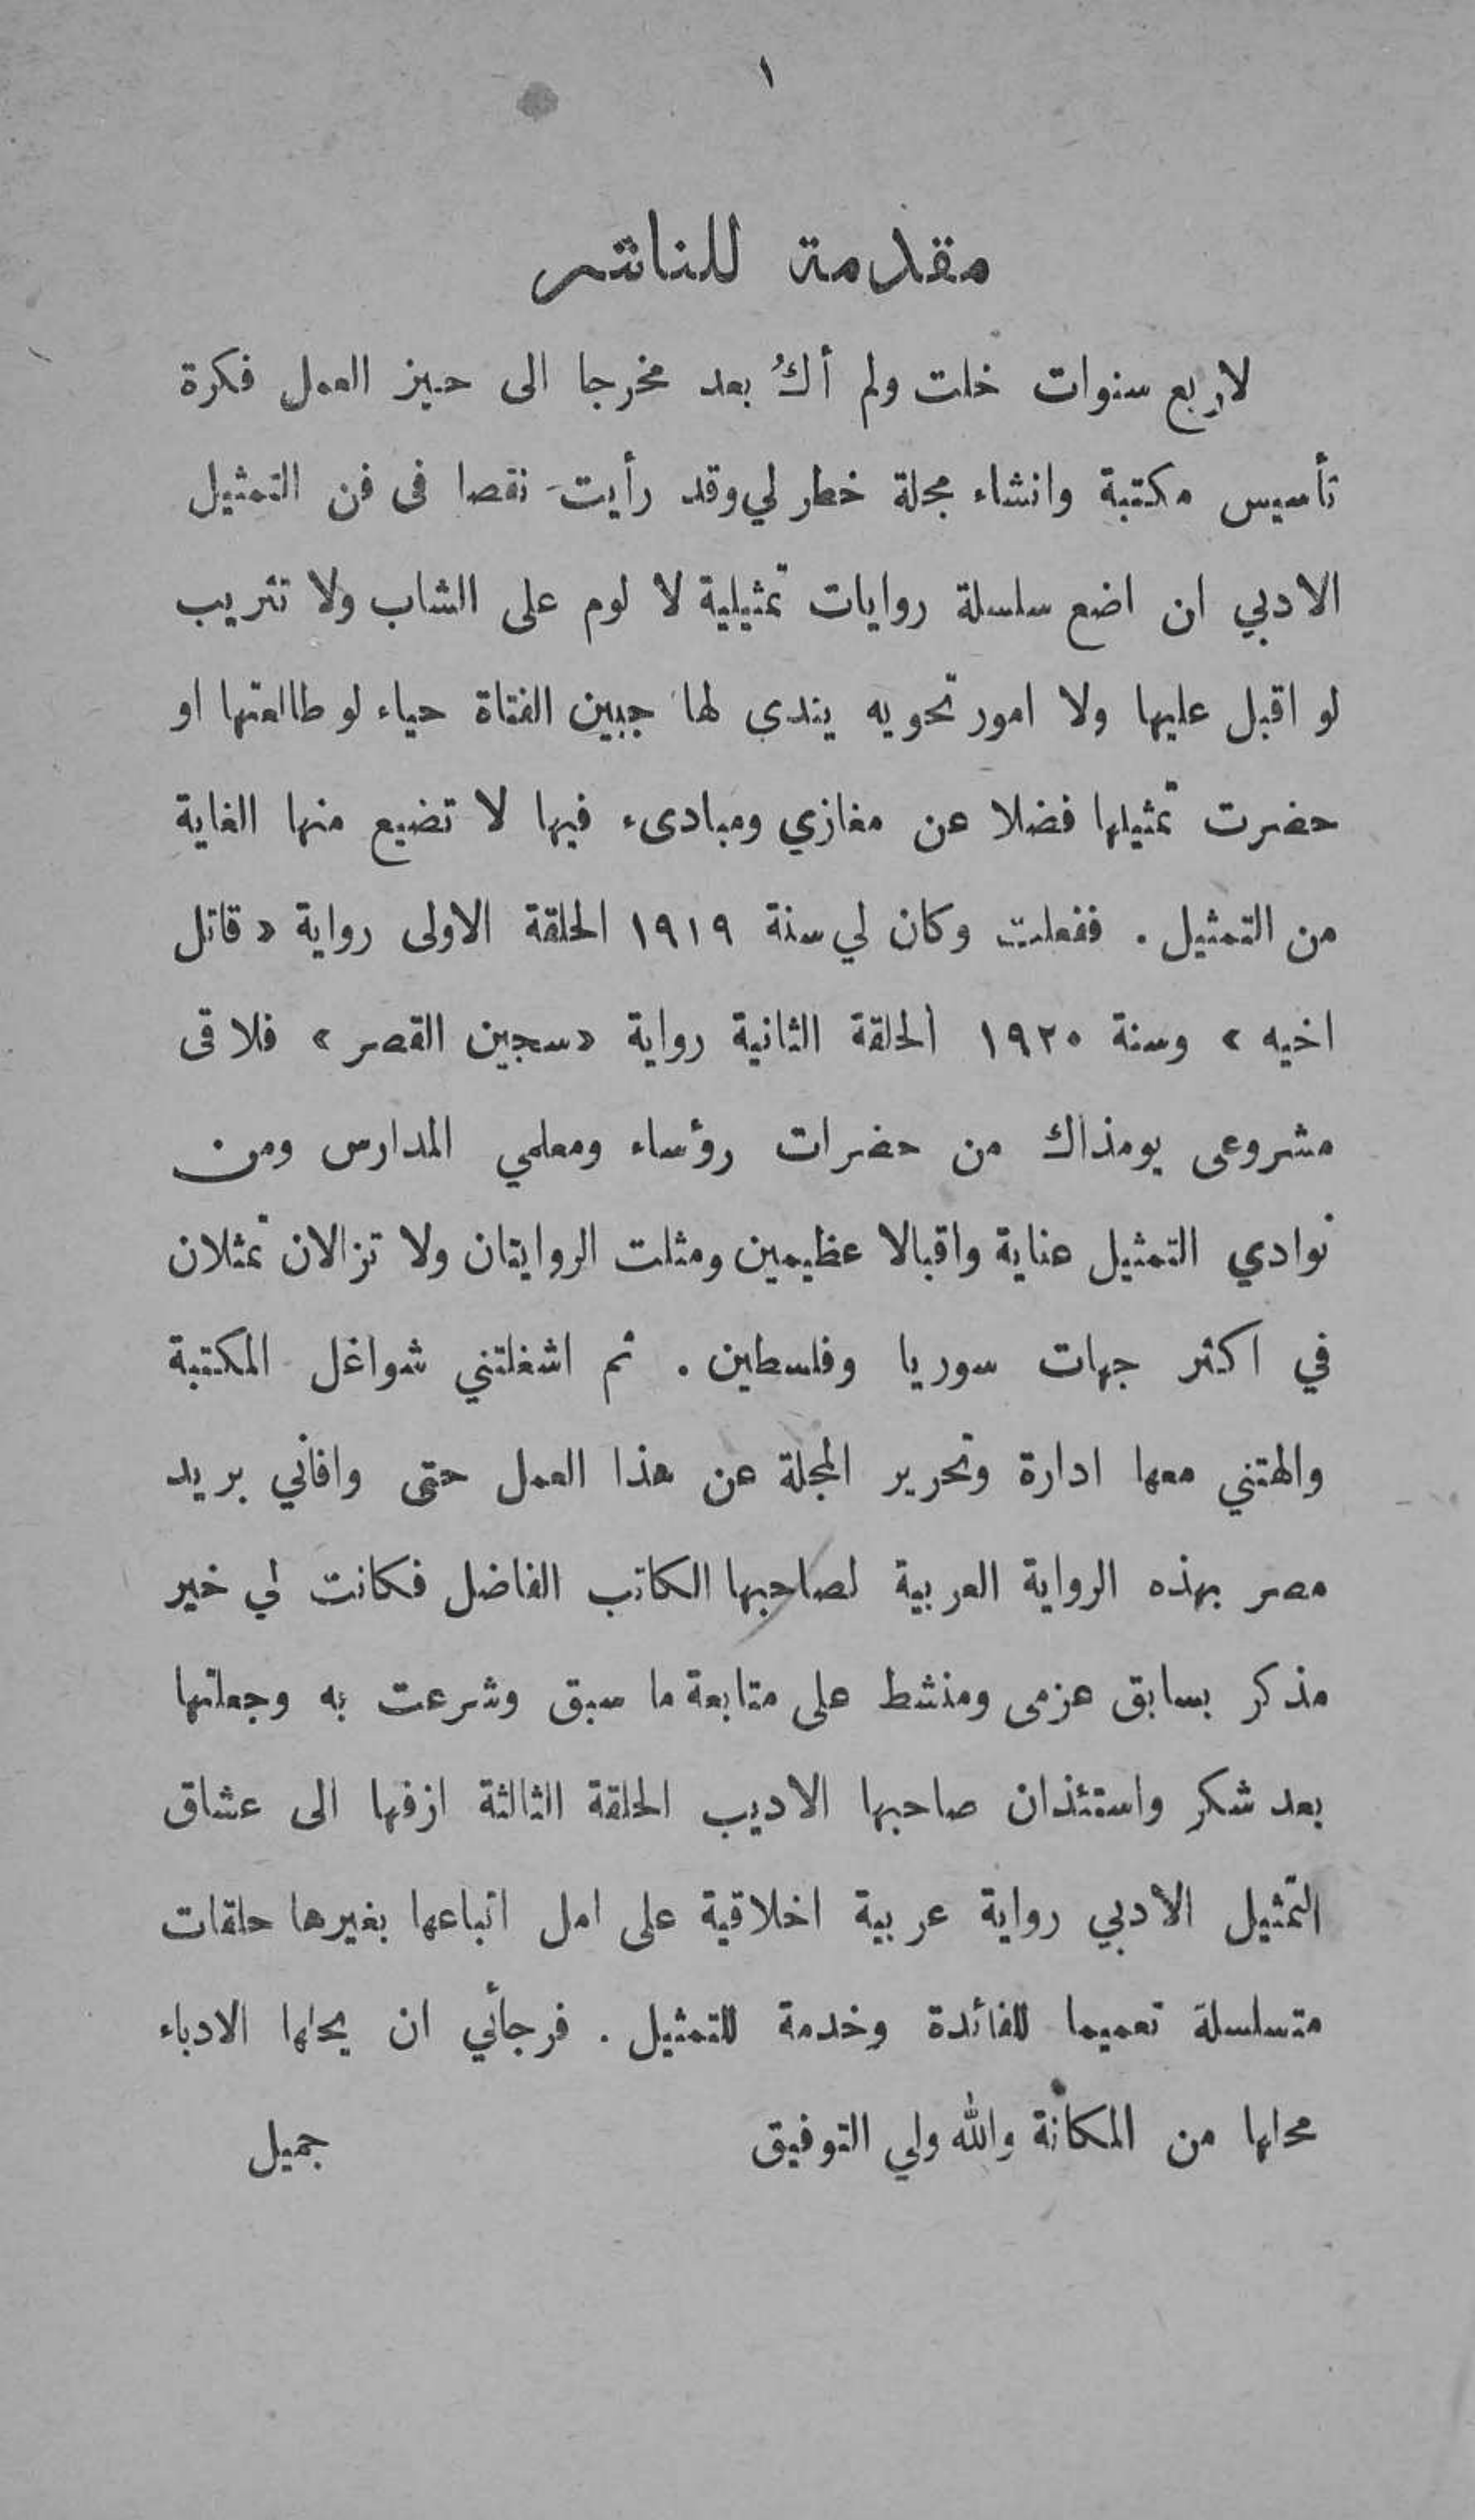 ١
مقدمة للناشر
لاربع سنوات خلت ولم أكُ بعد مخرجا الى حيز العمل فكرة
تأسيس مكتبة وانشاء مجلة خطر لي وقد رأيت نقصا فى فن التمثيل
الادبي ان اضع سلسلة روايات تمثيلية لا لوم على الشاب ولا تثريب
لو اقبل عليها ولا امور تحويه يندى لها جبين الفتاة حياء لو طالعتها او
حضرت تمثيلها فضلا عن مغازي ومبادىء فيها لا تضيع منها الغاية
من التمثيل . ففعلت وكان لي سنة ١٩١٩ الحلقة الاولى رواية « قاتل
اخيه » وسنة ١٩٢٠ الحلقة الثانية رواية «سجين القصر» فلاقى
مشروعى يومذاك من حضرات رؤساء ومعلمي المدارس ومن
نوادي التمثيل عناية واقبالا عظيمين ومثلت الروايتان ولا تزالان تمثلان
في اكثر جهات سوريا وفلسطين . ثم اشغلتني شواغل المكتبة
والهتني معها ادارة وتحرير المجلة عن هذا العمل حتى وافاني بريد
مصر بهذه الرواية العربية لصاحبها الكاتب الفاضل فكانت لي خير
مذكر بسابق عزمى ومنشط على متابعة ما سبق وشرعت به وجعلتها
بعد شكر واستئذان صاحبها الاديب الحلقة الثالثة ازفها الى عشاق
التمثيل الادبي رواية عربية اخلاقية على امل اتباعها بغيرها حلقات
متسلسلة تعميما للفائدة وخدمة للتمثيل . فرجائي ان يحلها الادباء
محلها من المكانة والله ولي التوفيق جميل